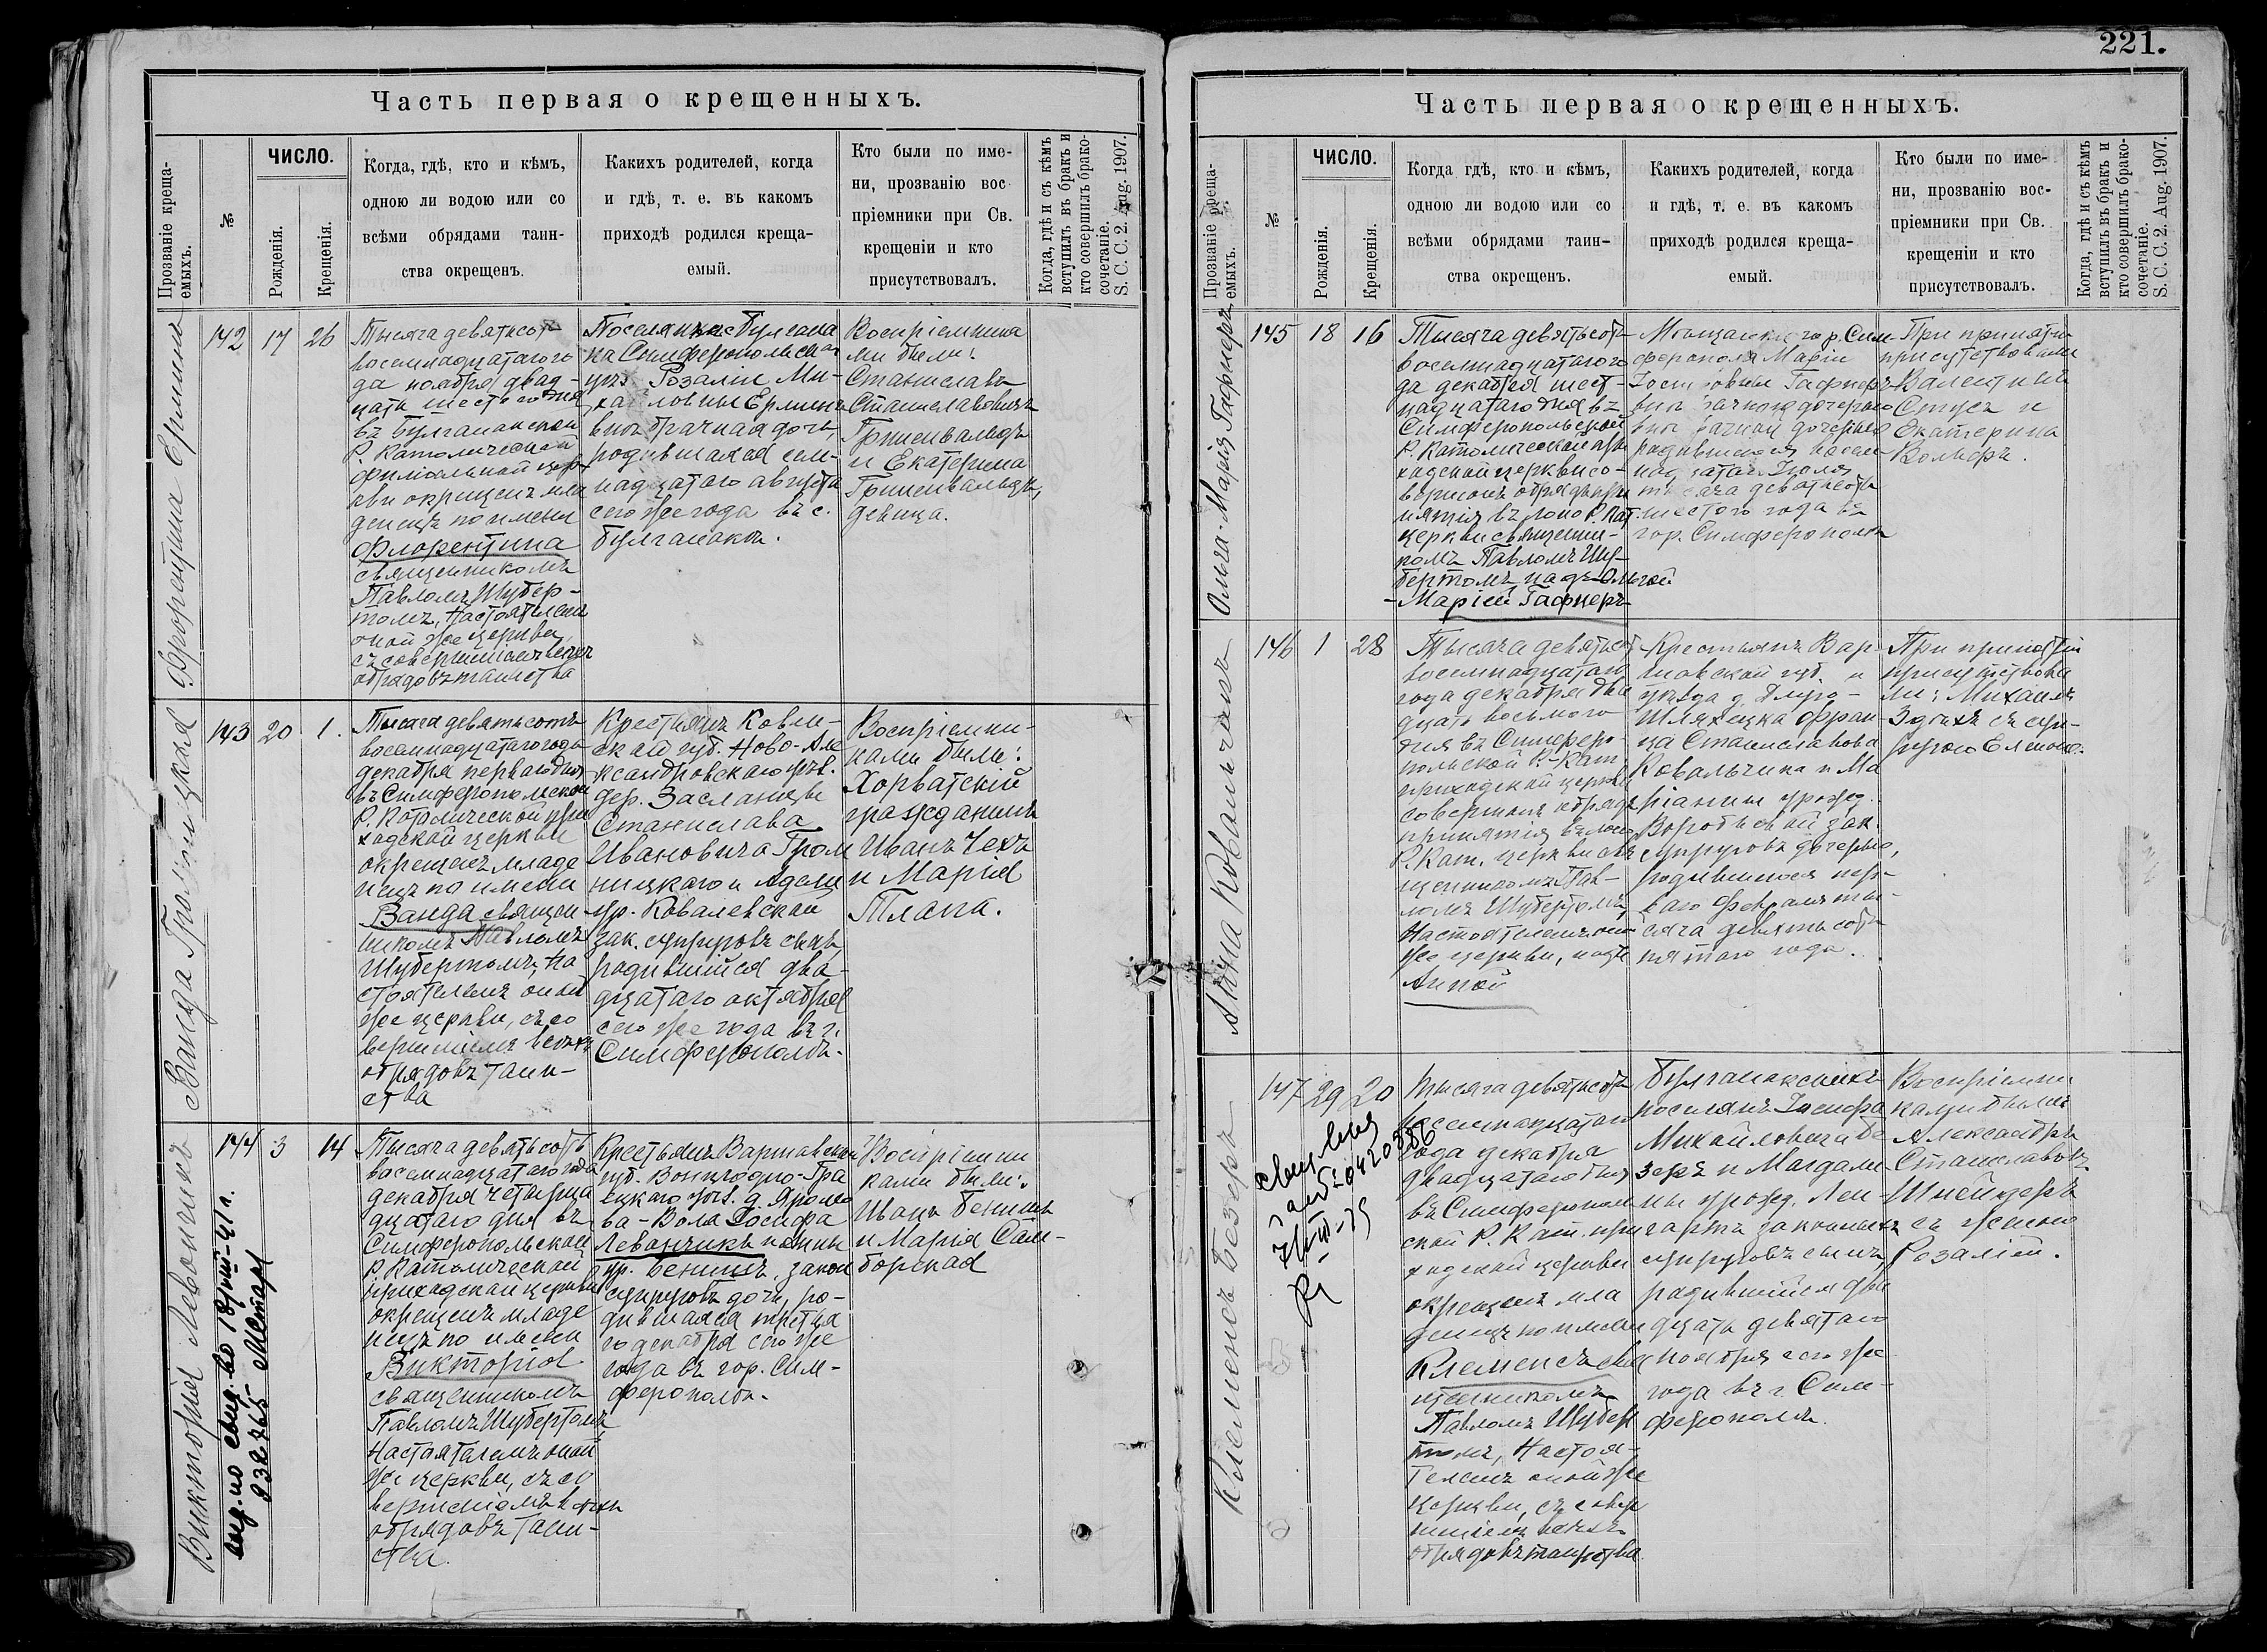 Часть первая о крещенныхъ.
Прозваніе креща-
емыхъ.
№
ЧИСЛО.
Рожденія.
Крещенія.
Когда, гдѣ, кто и кѣмъ,
одною ли водою или со
всѣми обрядами таин-
ства окрещенъ.
Какихъ родителей, когда
и гдѣ, т. е. въ какомъ
приходѣ родился креща-
емый.
Кто были по име-
ни, прозванію вос
пріемники при Св.
крещеніи и кто
присутствовалъ.
Когда, гдѣ и съ кѣмъ
вступилъ въ бракъ и
кто совершилъ брако-
сочетаніе.
S. C. C. 2. Aug. 1907.
Флорентина Ермина
142
17
26
Тысяча девятьсотъ
восемнадцатаго го
да ноября двад-
цать шестого дня
въ Булганакской
Р. Католической
филіальной цер
кви окрещенъ мла
денецъ по имени
Флорентина
священникомъ
Павломъ Шубер-
томъ, Настоятелемъ
оной же церкви,
съ совершеніемъ всѣхъ
обрядовъ таинства
Поселянки Булгана
ка Симферопольскаго
уѣз. Розаліи Ми-
хайловны Ермина
внѣбрачная дочь,
родившаяся сем-
надцатаго августа
сего же года въ с.
Булганакѣ.
Воспріемника
ми были:
Станиславъ
Станиславовичъ
Гриневальдъ
и Екатерина
Гриневальдъ,
девица.
Ванда Громницкая
143
20
1.
Тысяча девятьсотъ
восемнадцатаго года
декабря перваго дня
въ Симферопольской
Р. Католической при
ходской церкви
окрещенъ младе
нецъ по имени
Ванда священ-
никомъ Павломъ
Шубертомъ, На
стоятелемъ оной
же церкви, съ со
вершеніемъ всѣхъ
обрядовъ таин-
ства
Крестьянъ Ковен-
ской губ. Ново-Але
ксандровскаго уѣз.
дер. Засланцы
Станислава
Ивановича Гром
ницкаго и Адели
ур. Ковалевской
зак. супруговъ сынъ,
родившійся два-
дцатаго октября
сего же года въ г.
Симферополѣ.
Воспріемни-
ками были:
Хорватскій
гражданинъ
Иванъ Чехъ
и Марія
Тлапа.
Викторія Левончикъ
выд. по свид. во 18/VIII-41 г.
932265
144
3
14
Тысяча девятьсотъ
восемнадцатаго года
декабря четырна
дцатаго дня въ
Симферопольской
Р. Католической
приходской церкви
окрещенъ младе
нецъ по имени
Викторія
священникомъ
Павломъ Шубертомъ,
Настоятелемъ оной
же церкви, съ со
вершеніемъ всѣхъ
обрядовъ таин-
ства.
Крестьянъ Варшавской
губ.
уѣз. д.
ва-Вола Іосифа
Леванчикъ и Анны
ур. Бенишъ, закон
супруговъ дочь, ро-
дившаяся третья
го декабря сего же
года въ гор. Сим-
ферополѣ.
Воспріемни
ками были:
Иванъ Бенишъ
и Марія Сам-
борская
221.
Часть первая о крещенныхъ.
Прозваніе креща-
емыхъ.
№
ЧИСЛО.
Рожденія.
Крещенія.
Когда, гдѣ, кто и кѣмъ,
одною ли водою или со
всѣми обрядами таин-
ства окрещенъ.
Какихъ родителей, когда
и гдѣ, т. е. въ какомъ
приходѣ родился креща-
емый.
Кто были по име-
ни, прозванію вос-
пріемники при Св.
крещеніи и кто
присутствовалъ.
Когда, гдѣ и съ кѣмъ
вступилъ въ бракъ и
кто совершилъ брако-
сочетаніе.
S. C. C. 2. Aug. 1907.
Ольга-Марія Гафнеръ
145
18
16
Тысяча девятьсотъ
восемнадцатаго го
да декабря шест-
надцатаго дня въ
Симферопольской
Р. Католической при
ходской церкви со-
вершонъ обрядъ при
нятія въ лоно Р. Кат.
церкви священни-
комъ Павломъ Шу-
бертомъ надъ Ольгой
-Маріей Гафнеръ
Мѣщанки гор. Сим-
ферополя Маріи
Гафнеръ
внѣбрачною дочерью
родившеюся восем-
надцатаго Іюля
тысяча девятьсотъ
шестого года въ
гор. Симферополѣ
При принятіи
присутствовали
Валентинъ
Стусъ и
Екатерина
Вольфъ.
Анна Ковальчикъ
146
1
28
Тысяча девятьсотъ
восемнадцатаго
года декабря два
дцать восьмого
дня въ Симферо-
польской Р.-Кат.
приходской церкви
совершонъ обрядъ
принятія въ лоно
Р. Кат. церкви свя
щенникомъ Пав-
ломъ Шубертомъ,
Настоятелемъ оной
же церкви, надъ
Анной
Крестьянъ Вар-
шавской губ. и
уѣзда д. Длуго-
Шляхецка Фран
ца Станиславова
Ковальчика и Ма
ріанны урожд.
зак.
супруговъ дочерью,
родившеюся пер-
ваго февраля ты-
сяча девятьсотъ
пятаго года.
При принятіи
присутствова
ли: Михаилъ
съ суп-
ругою Еленою.
Клеменсъ Безеръ
147
29
20
Тысяча девятьсотъ
восемнадцатаго
года декабря
двадцатаго дня
въ Симферополь
ской Р. Кат. при
ходской церкви
окрещенъ мла
денецъ по имени
Клеменсъ свя
щенникомъ
Павломъ Шубер
томъ, Настоя-
телемъ оной же
церкви, съ совер
шеніемъ всѣхъ
обрядовъ таинства
Булганакскихъ
поселянъ Іосифа
Михайловича Бе
зеръ и Магдали-
ны урожд. Лен-
гартъ законныхъ
супруговъ сынъ,
родившійся два
дцать девятаго
ноября сего же
года въ г. Сим-
ферополѣ.
Воспріемни
ками были
Александръ
Станиславовъ
Шнейдеръ
съ женою
Розаліей.